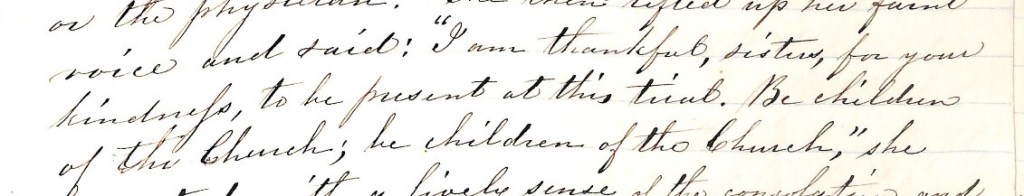 or the physician. She then lifted up her faint
voice and said: "I am thankful, sisters, for your
kindness, to be present at this trial. Be children
of the Church; be children of the Church," she
with a lively sense of the consolation and